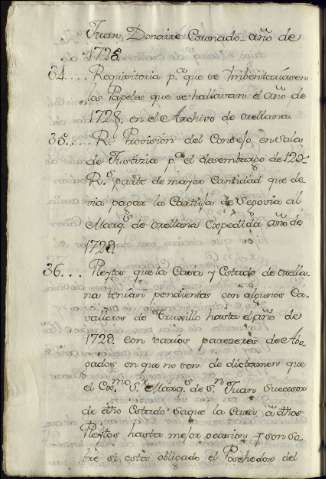 Juan Donaire Coronado año de
1728
34.... Requisitoria p.ª que se Imbentariasen
los Papeles que se hallavan el año de
1728, en el Archivo de orellana
35.... R.l Provision del Consejo, en Sala
de Justizia p.ª el desembargo de 122
R.s parte de mayor Cantidad que de
via pagar la Cartuja de Segovia al
Marq.s de orellana Expedida año de
1728
36... Pleytos que la Casa y Estado de orella
na tenian pendientes con algunos Ca
valleros de Truxillo hasta el año de
1728 con varios parezeres de Abo
gados en que no son de dictamen que
el Ex.mo S. Marq.s de S.n Juan Succesor
de dho Estado saque la Cara, a dhos
Pleytos hasta mejor ocasion, y son so
bre si esta obligado el Posehedor del